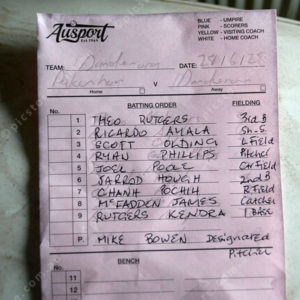 Ausport
BLUE - UMPIRE
PINK - SCORERS
YELLOW - VISITING COACH
WHITE - HOME COACH
TEAM: Dandenong DATE: 28/6/28
Pakenham V Dandenong
Home Away
BATTING ORDER FIELDING
No.
1 THEO RUTGERS 3rd B
2 RICARDO AYALA Sh-S
3 SCOTT GOLDING L Field
4 RYAN PHILLIPS Pitcher
5 JOEL POOLE Cnt Field
6 JARROD HOUGH 2nd B
7 CHANH POCHIH R Field
8 McFADDEN JAMES Catcher
9 RUTGERS KENDRA 1 Base
P MIKE BOWEN Designated
Pitcher
BENCH
No.
11
12